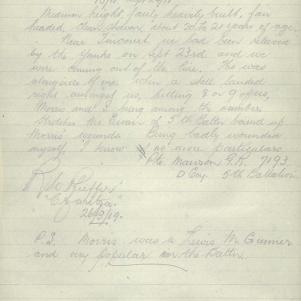 Medium height, fairly heavily built, fair
headed, clean shaven, about 20 to 21 years of age.
Near Tincourt we had been relieved
by the Yanks on Sept 23rd and we
were coming out of the line. He was
alongside of me when a shell landed
right amongst us, hitting 8 or 9 of us,
Morris and I being among the number
Stretcher Mr Ewan of 5th Battn bound up
Morris' wounds. Being badly wounded
myself I know no more particulars.
Pte Mawson G.R. 7193.
D Coy. 5th Battalion
26/3/19.
P.S. Morris was a Lewis M. Gunner
and very popular in the Battn.